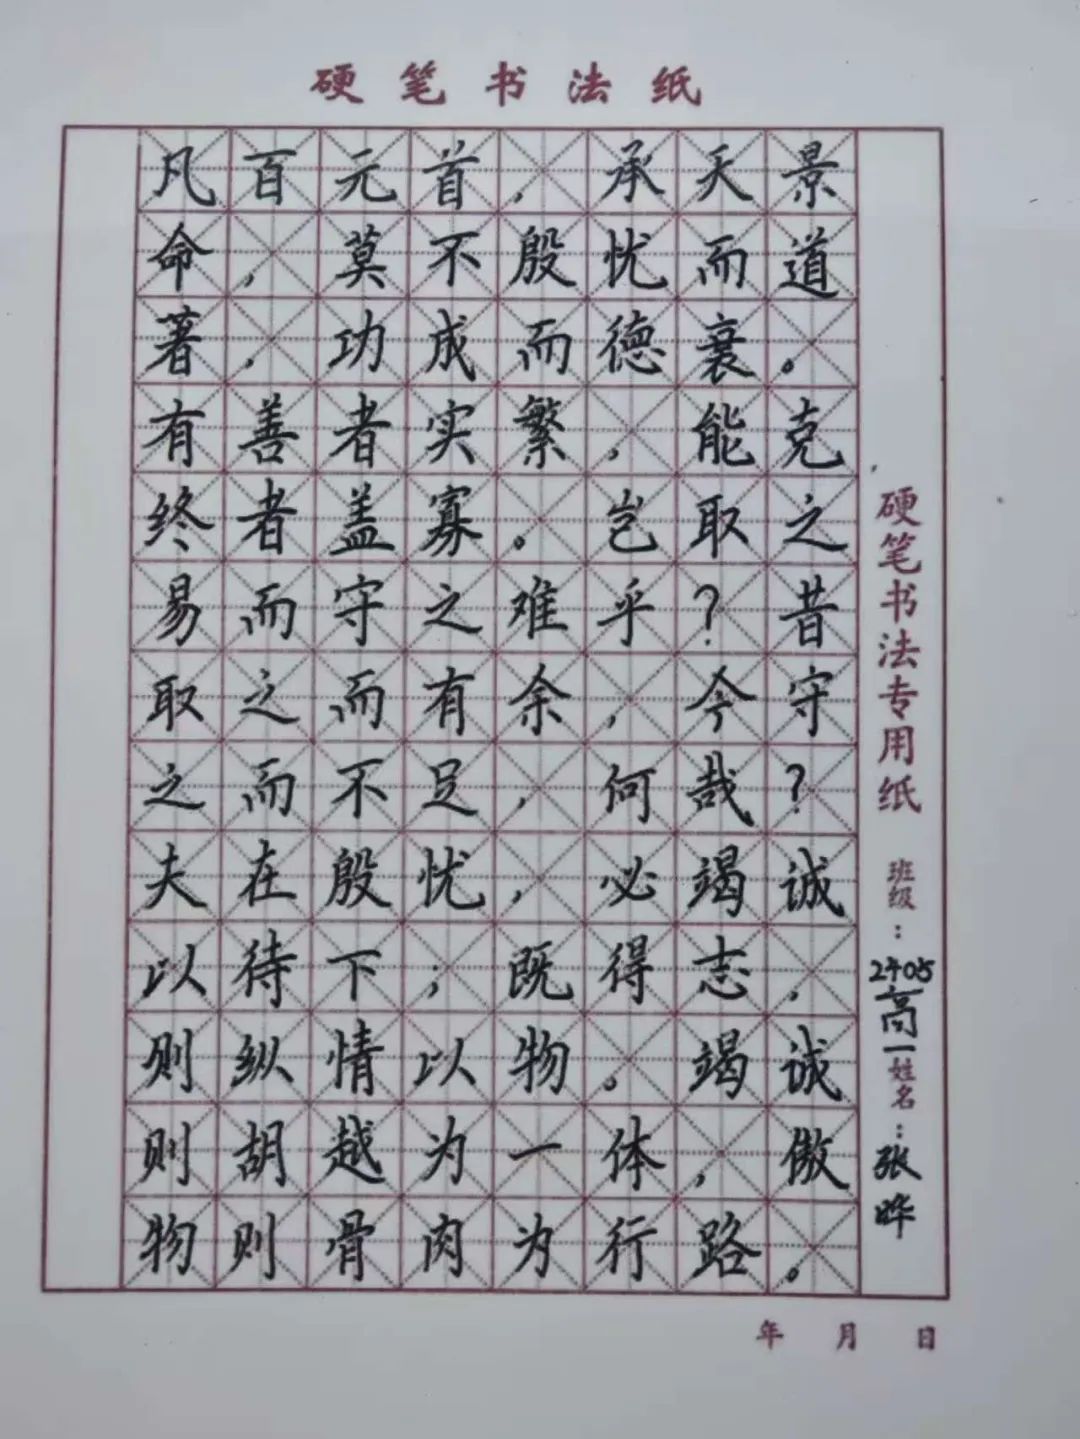 硬笔书法纸
凡百元首，承天景
命，莫不殷忧而道
著，功成而德衰。
有善者实繁，能克
终者盖寡。岂取之
易而守之难乎？昔
取之而有余，今守
之而不足，何哉？
夫在殷忧，必竭诚
以待下；既得志，
则纵情以物。竭诚
则胡越为一体，傲
物则骨肉为行路。
硬笔书法专用纸 班级：2405高一 姓名：张晔
年 月 日